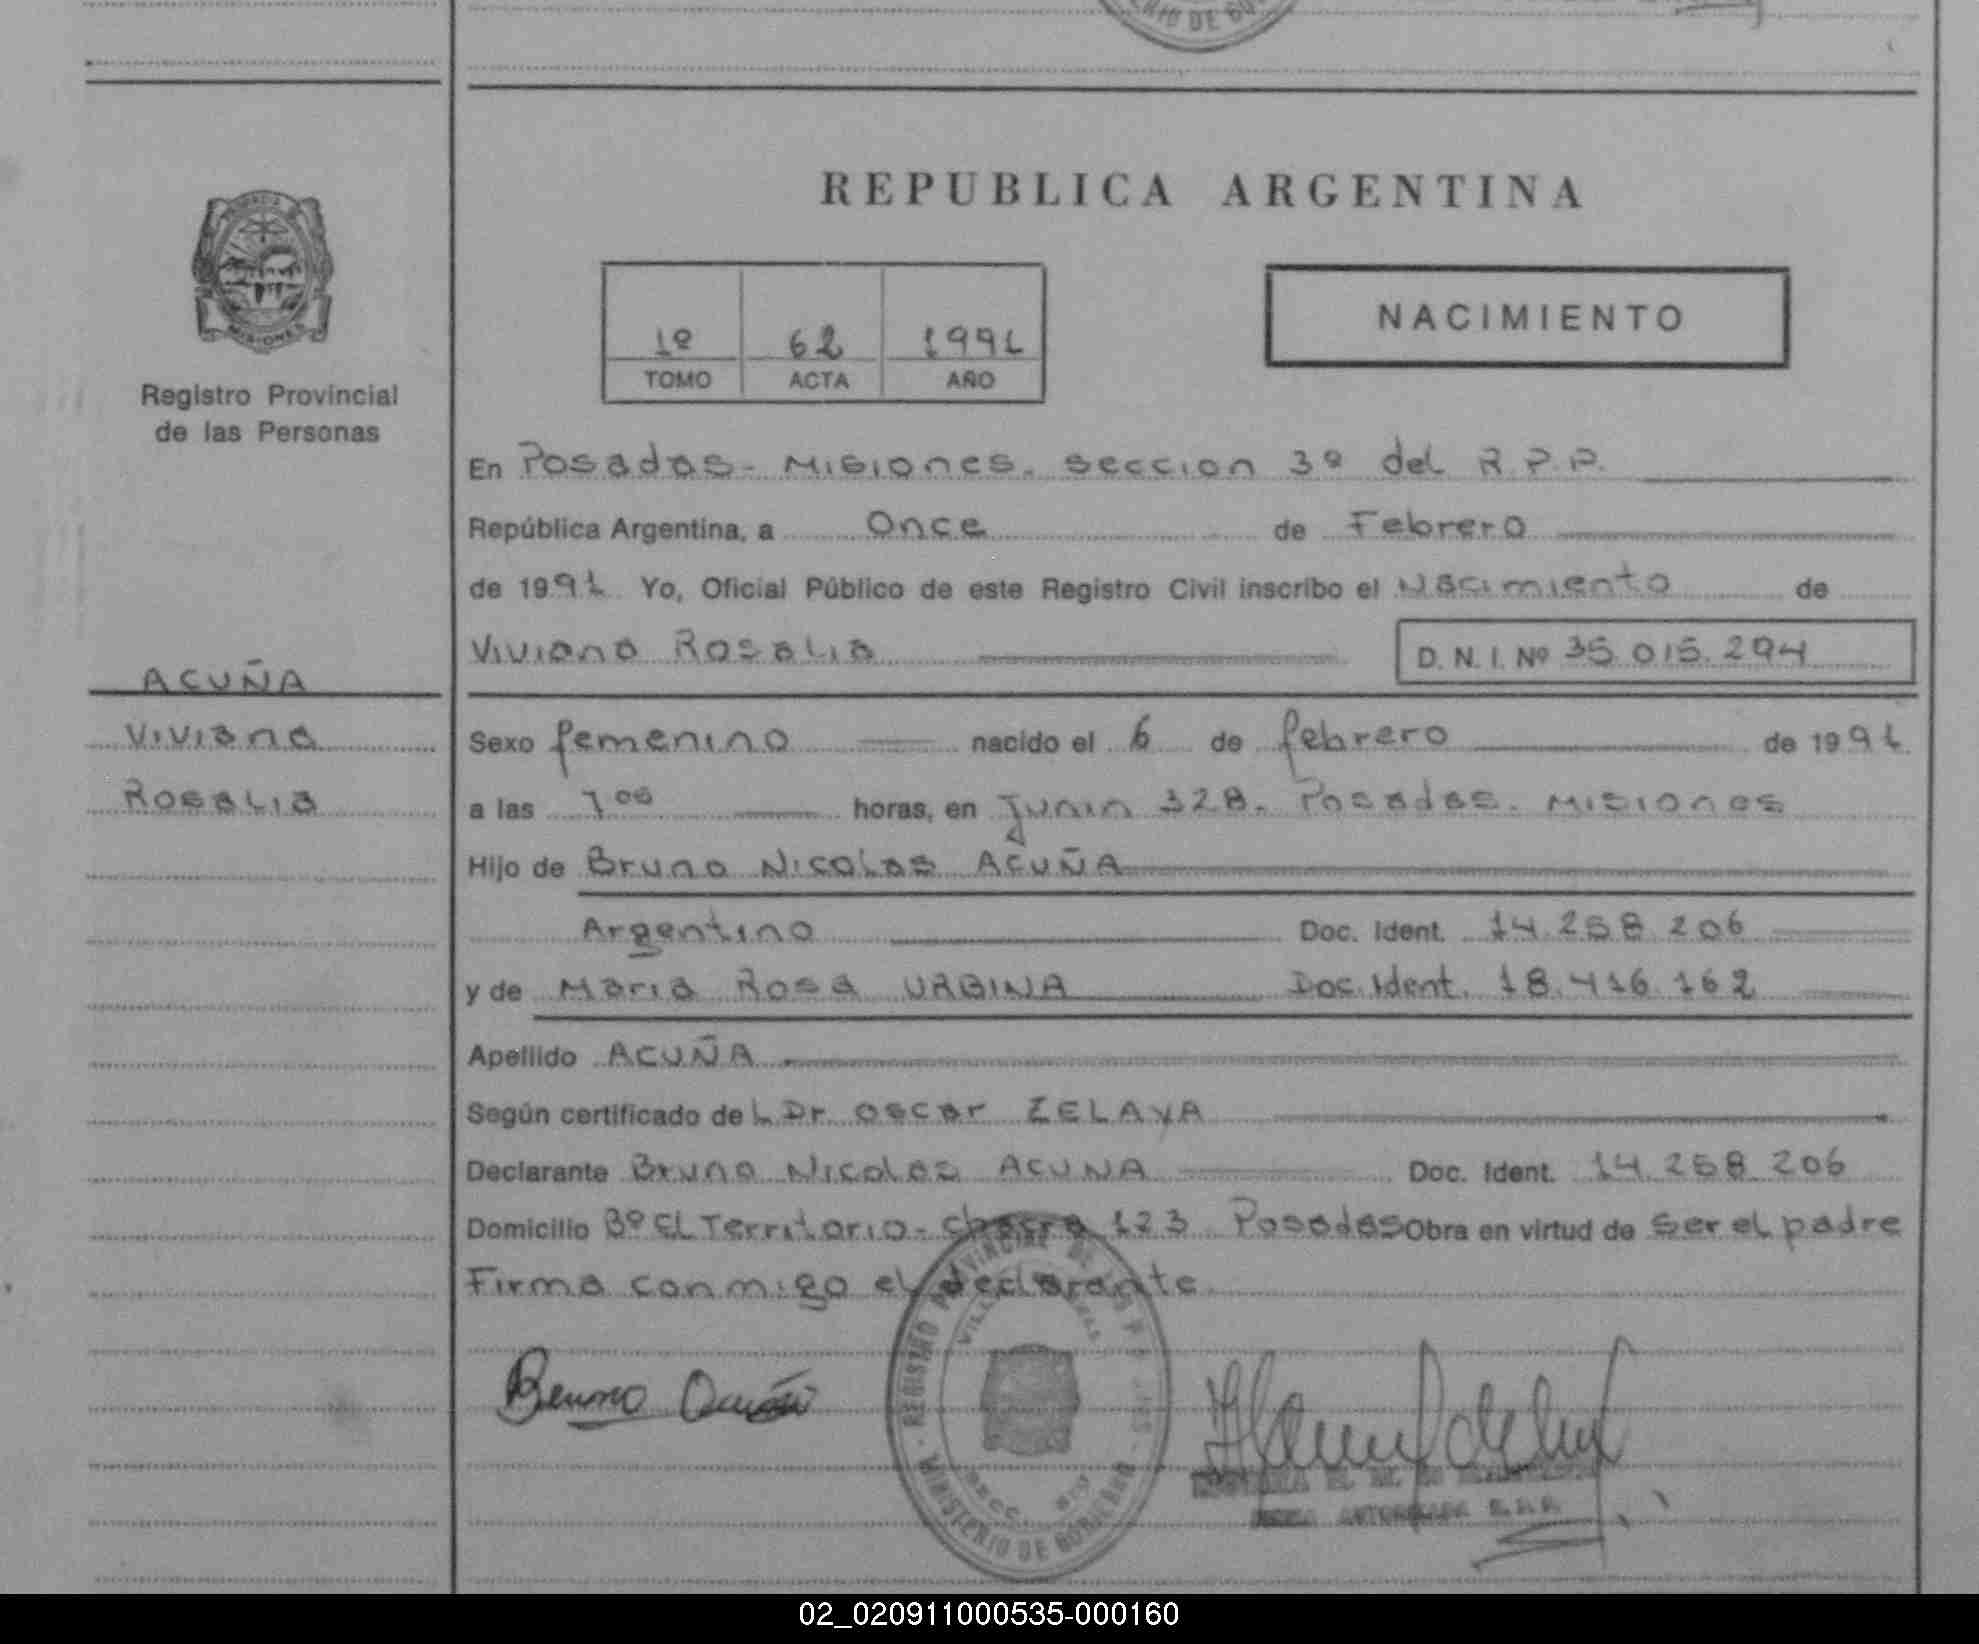 ERIO DE GO
REPUBLICA ARGENTINA
MISIONES
Registro Provincial
de las Personas
1º 62 1991
TOMO ACTA AÑO
NACIMIENTO
En Posadas- Misiones. seccion 3º del R.P.P.
República Argentina, a Once de Febrero
de 1991 Yo, Oficial Público de este Registro Civil inscribo el Nacimiento de
Viviana Rosalia D. N. I. Nº 35.015.294
ACUÑA
Viviana
Rosalia
Sexo femenino nacido el 6 de febrero de 1991
a las 7 00 horas, en Junin 328. Posadas. Misiones
Hijo de Bruno Nicolas ACUÑA
Argentino Doc. Ident. 14.258.206
y de Maria Rosa URBINA Doc. Ident. 18.416.162
Apellido ACUÑA
Según certificado de L Dr. Oscar ZELAYA
Declarante Bruno Nicolas ACUNA Doc. Ident. 14.258.206
Domicilio Bº El Territorio- chacra 123 Posadas Obra en virtud de ser el padre
Firma conmigo el declarante
Bruno Acuña
REGISTRO PROVINCIAL DE LAS P
MINISTERIO DE GOBIERNO
AUTORIZADA
02_020911000535-000160